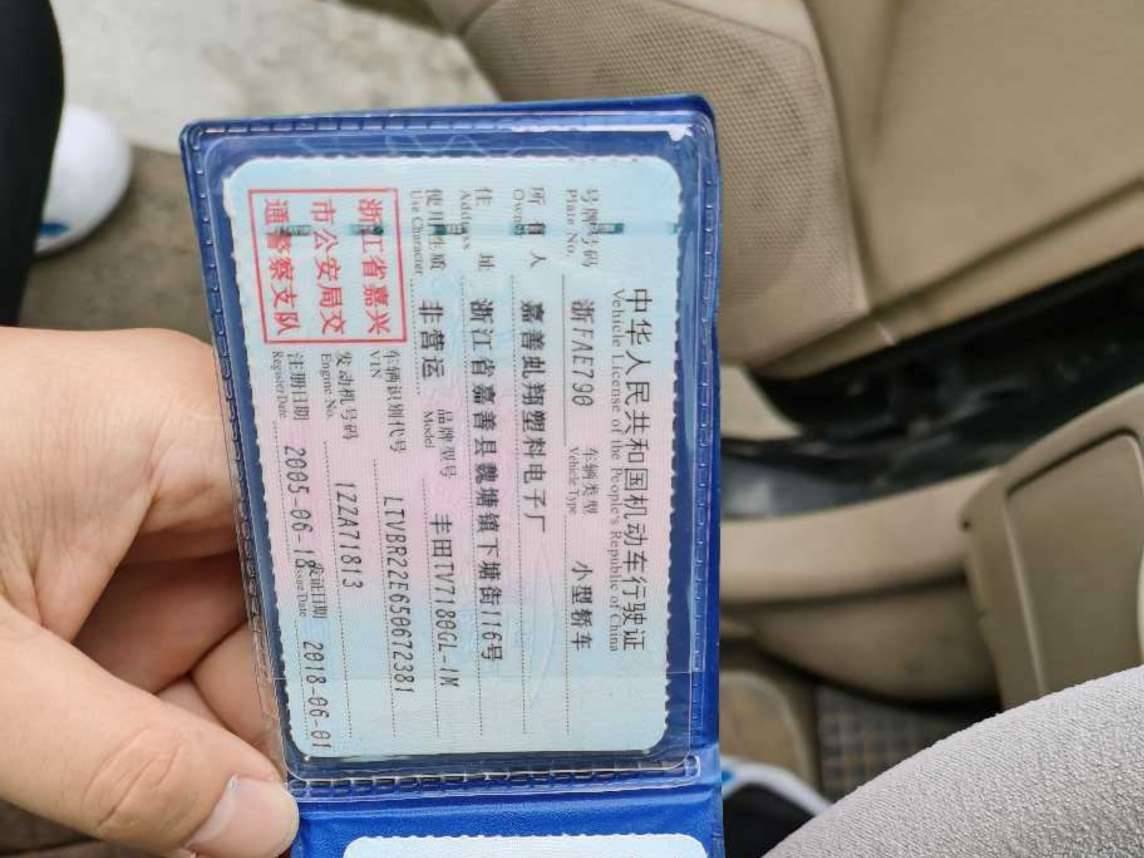 中华人民共和国机动车行驶证
Vehicle License of the People's Republic of China
号牌号码 浙FAE790 车辆类型 小型轿车
Plate No. Vehicle Type
所有人 嘉善虬翔塑料电子厂
Owner
住址 浙江省嘉善县魏塘镇下塘街116号
Address
使用性质 非营运 品牌型号 丰田TV7180GL-IM
Use Character Model
浙江省嘉兴
市公安局交
通警察支队
车辆识别代号 LTVBR22E650672381
VIN
发动机号码 1ZZA71813
Engine No.
注册日期 2005-06-18 发证日期 2018-06-01
Register Date Issue Date